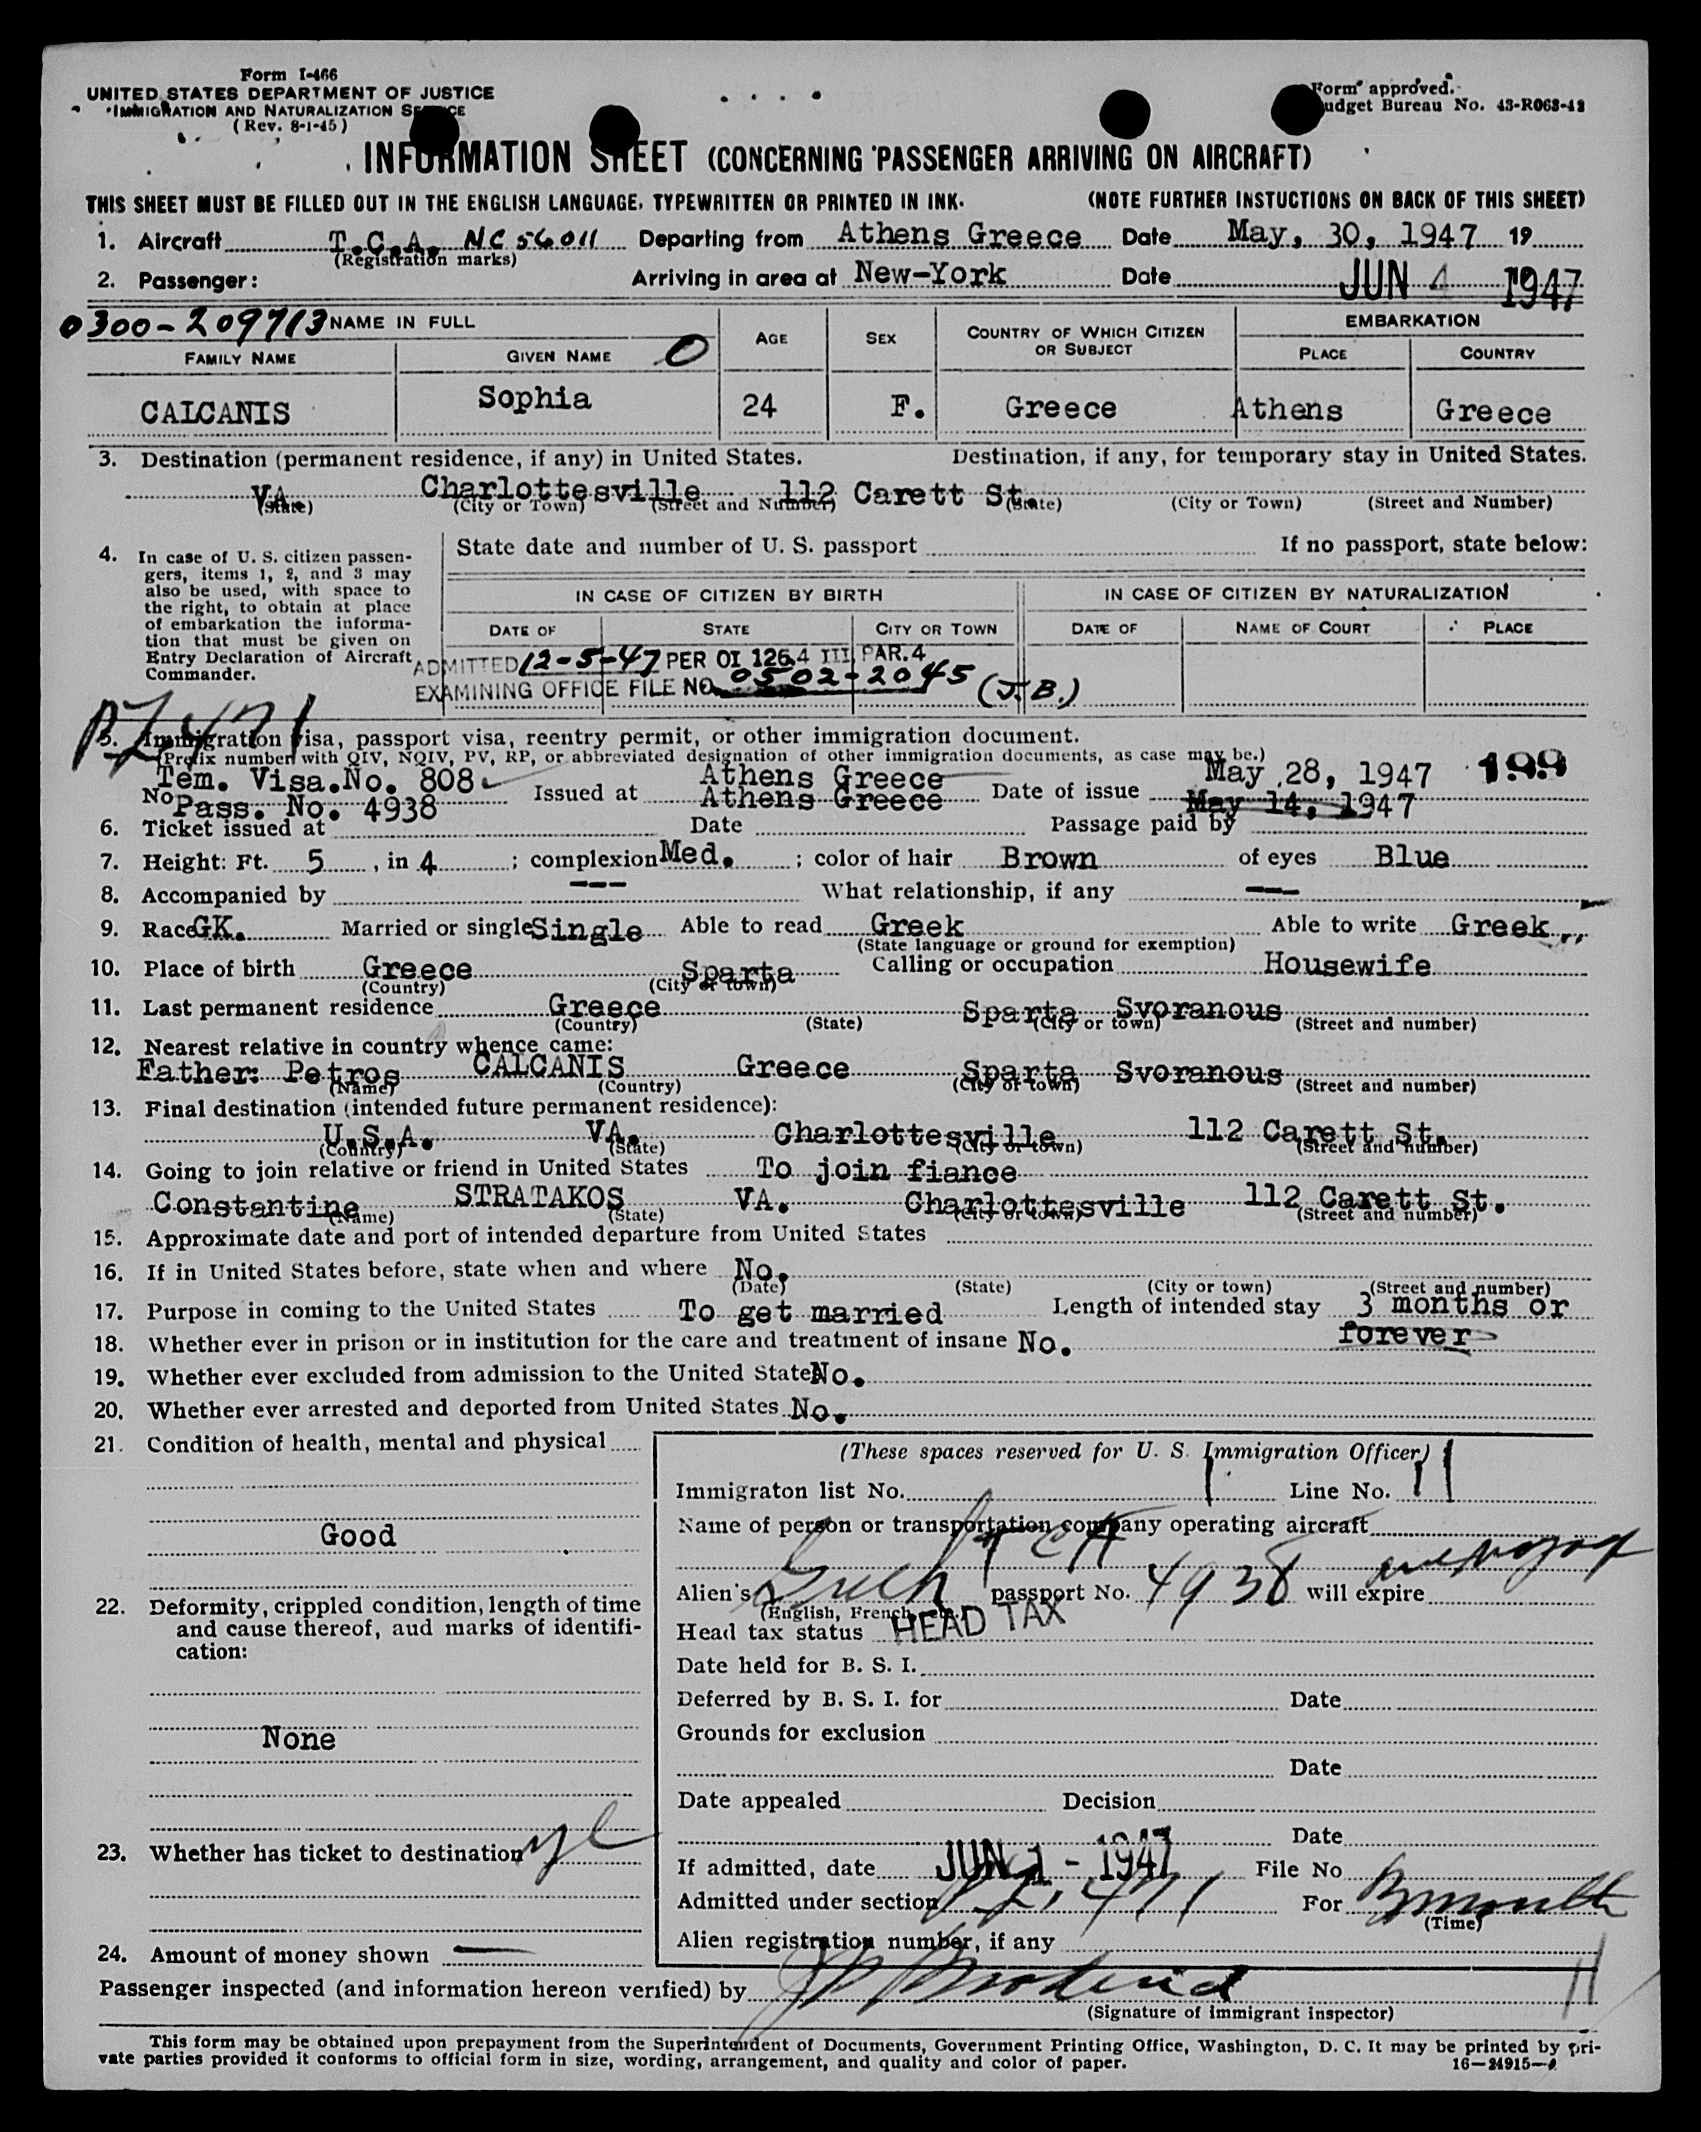 Form I-466
UNITED STATES DEPARTMENT OF JUSTICE
IMMIGRATION AND NATURALIZATION SERVICE
(Rev. 8-1-45)
Form approved.
Budget Bureau No. 43-R063-42
INFORMATION SHEET (CONCERNING PASSENGER ARRIVING ON AIRCRAFT)
THIS SHEET MUST BE FILLED OUT IN THE ENGLISH LANGUAGE, TYPEWRITTEN OR PRINTED IN INK. (NOTE FURTHER INSTUCTIONS ON BACK OF THIS SHEET)
1. Aircraft T.C.A. NC 56011 Departing from Athens Greece Date May, 30, 1947 19
(Registration marks)
2. Passenger: Arriving in area at New-York Date JUN 4 1947
0300-209713 NAME IN FULL AGE SEX COUNTRY OF WHICH CITIZEN OR SUBJECT EMBARKATION
FAMILY NAME GIVEN NAME O PLACE COUNTRY
CALCANIS Sophia 24 F. Greece Athens Greece
3. Destination (permanent residence, if any) in United States. Destination, if any, for temporary stay in United States.
VA. Charlottesville 112 Carett St.
(State) (City or Town) (Street and Number) (State) (City or Town) (Street and Number)
4. In case of U. S. citizen passen-
gers, items 1, 2, and 3 may
also be used, with space to
the right, to obtain at place
of embarkation the informa-
tion that must be given on
Entry Declaration of Aircraft
Commander.
State date and number of U. S. passport If no passport, state below:
IN CASE OF CITIZEN BY BIRTH IN CASE OF CITIZEN BY NATURALIZATION
DATE OF STATE CITY OR TOWN DATE OF NAME OF COURT PLACE
ADMITTED 12-5-47 PER OI 126.4 III PAR.4
EXAMINING OFFICE FILE NO. 0502-2045 (J.B.)
5. Immigration visa, passport visa, reentry permit, or other immigration document.
(Prefix number with QIV, NQIV, PV, RP, or abbreviated designation of other immigration documents, as case may be.)
Tem. Visa.No. 808 Athens Greece May 28, 1947 199
No. Pass. No. 4938 Issued at Athens Greece Date of issue May 14, 1947
6. Ticket issued at Date Passage paid by
7. Height: Ft. 5, in 4; complexion Med.; color of hair Brown of eyes Blue
8. Accompanied by --- What relationship, if any ---
9. Race GK. Married or single Single Able to read Greek Able to write Greek
(State language or ground for exemption)
10. Place of birth Greece Sparta Calling or occupation Housewife
(Country) (City or town)
11. Last permanent residence Greece Sparta Svoranous
(Country) (State) (City or town) (Street and number)
12. Nearest relative in country whence came:
Father: Petros CALCANIS Greece Sparta Svoranous
(Name) (Country) (City or town) (Street and number)
13. Final destination (intended future permanent residence):
U.S.A. VA. Charlottesville 112 Carett St.
(Country) (State) (City or town) (Street and number)
14. Going to join relative or friend in United States To join fiance
Constantine STRATAKOS VA. Charlottesville 112 Carett St.
(Name) (State) (City or town) (Street and number)
15. Approximate date and port of intended departure from United States
16. If in United States before, state when and where No.
(Date) (State) (City or town) (Street and number)
17. Purpose in coming to the United States To get married Length of intended stay 3 months or
forever
18. Whether ever in prison or in institution for the care and treatment of insane No.
19. Whether ever excluded from admission to the United States No.
20. Whether ever arrested and deported from United States No.
21. Condition of health, mental and physical
Good
22. Deformity, crippled condition, length of time
and cause thereof, aud marks of identifi-
cation:
None
23. Whether has ticket to destination
24. Amount of money shown —
(These spaces reserved for U. S. Immigration Officer)
Immigraton list No. 1 Line No. 11
Name of person or transportation company operating aircraft
TCA
Alien's Greek passport No. 4938 will expire
(English, French, etc.)
Head tax status HEAD TAX
Date held for B. S. I.
Deferred by B. S. I. for Date
Grounds for exclusion
Date
Date appealed Decision
Date
If admitted, date JUN 1 - 1947 File No
Admitted under section For
(Time)
Alien registration number, if any
Passenger inspected (and information hereon verified) by
(Signature of immigrant inspector)
This form may be obtained upon prepayment from the Superintendent of Documents, Government Printing Office, Washington, D. C. It may be printed by pri-
vate parties provided it conforms to official form in size, wording, arrangement, and quality and color of paper.
16-24915-1